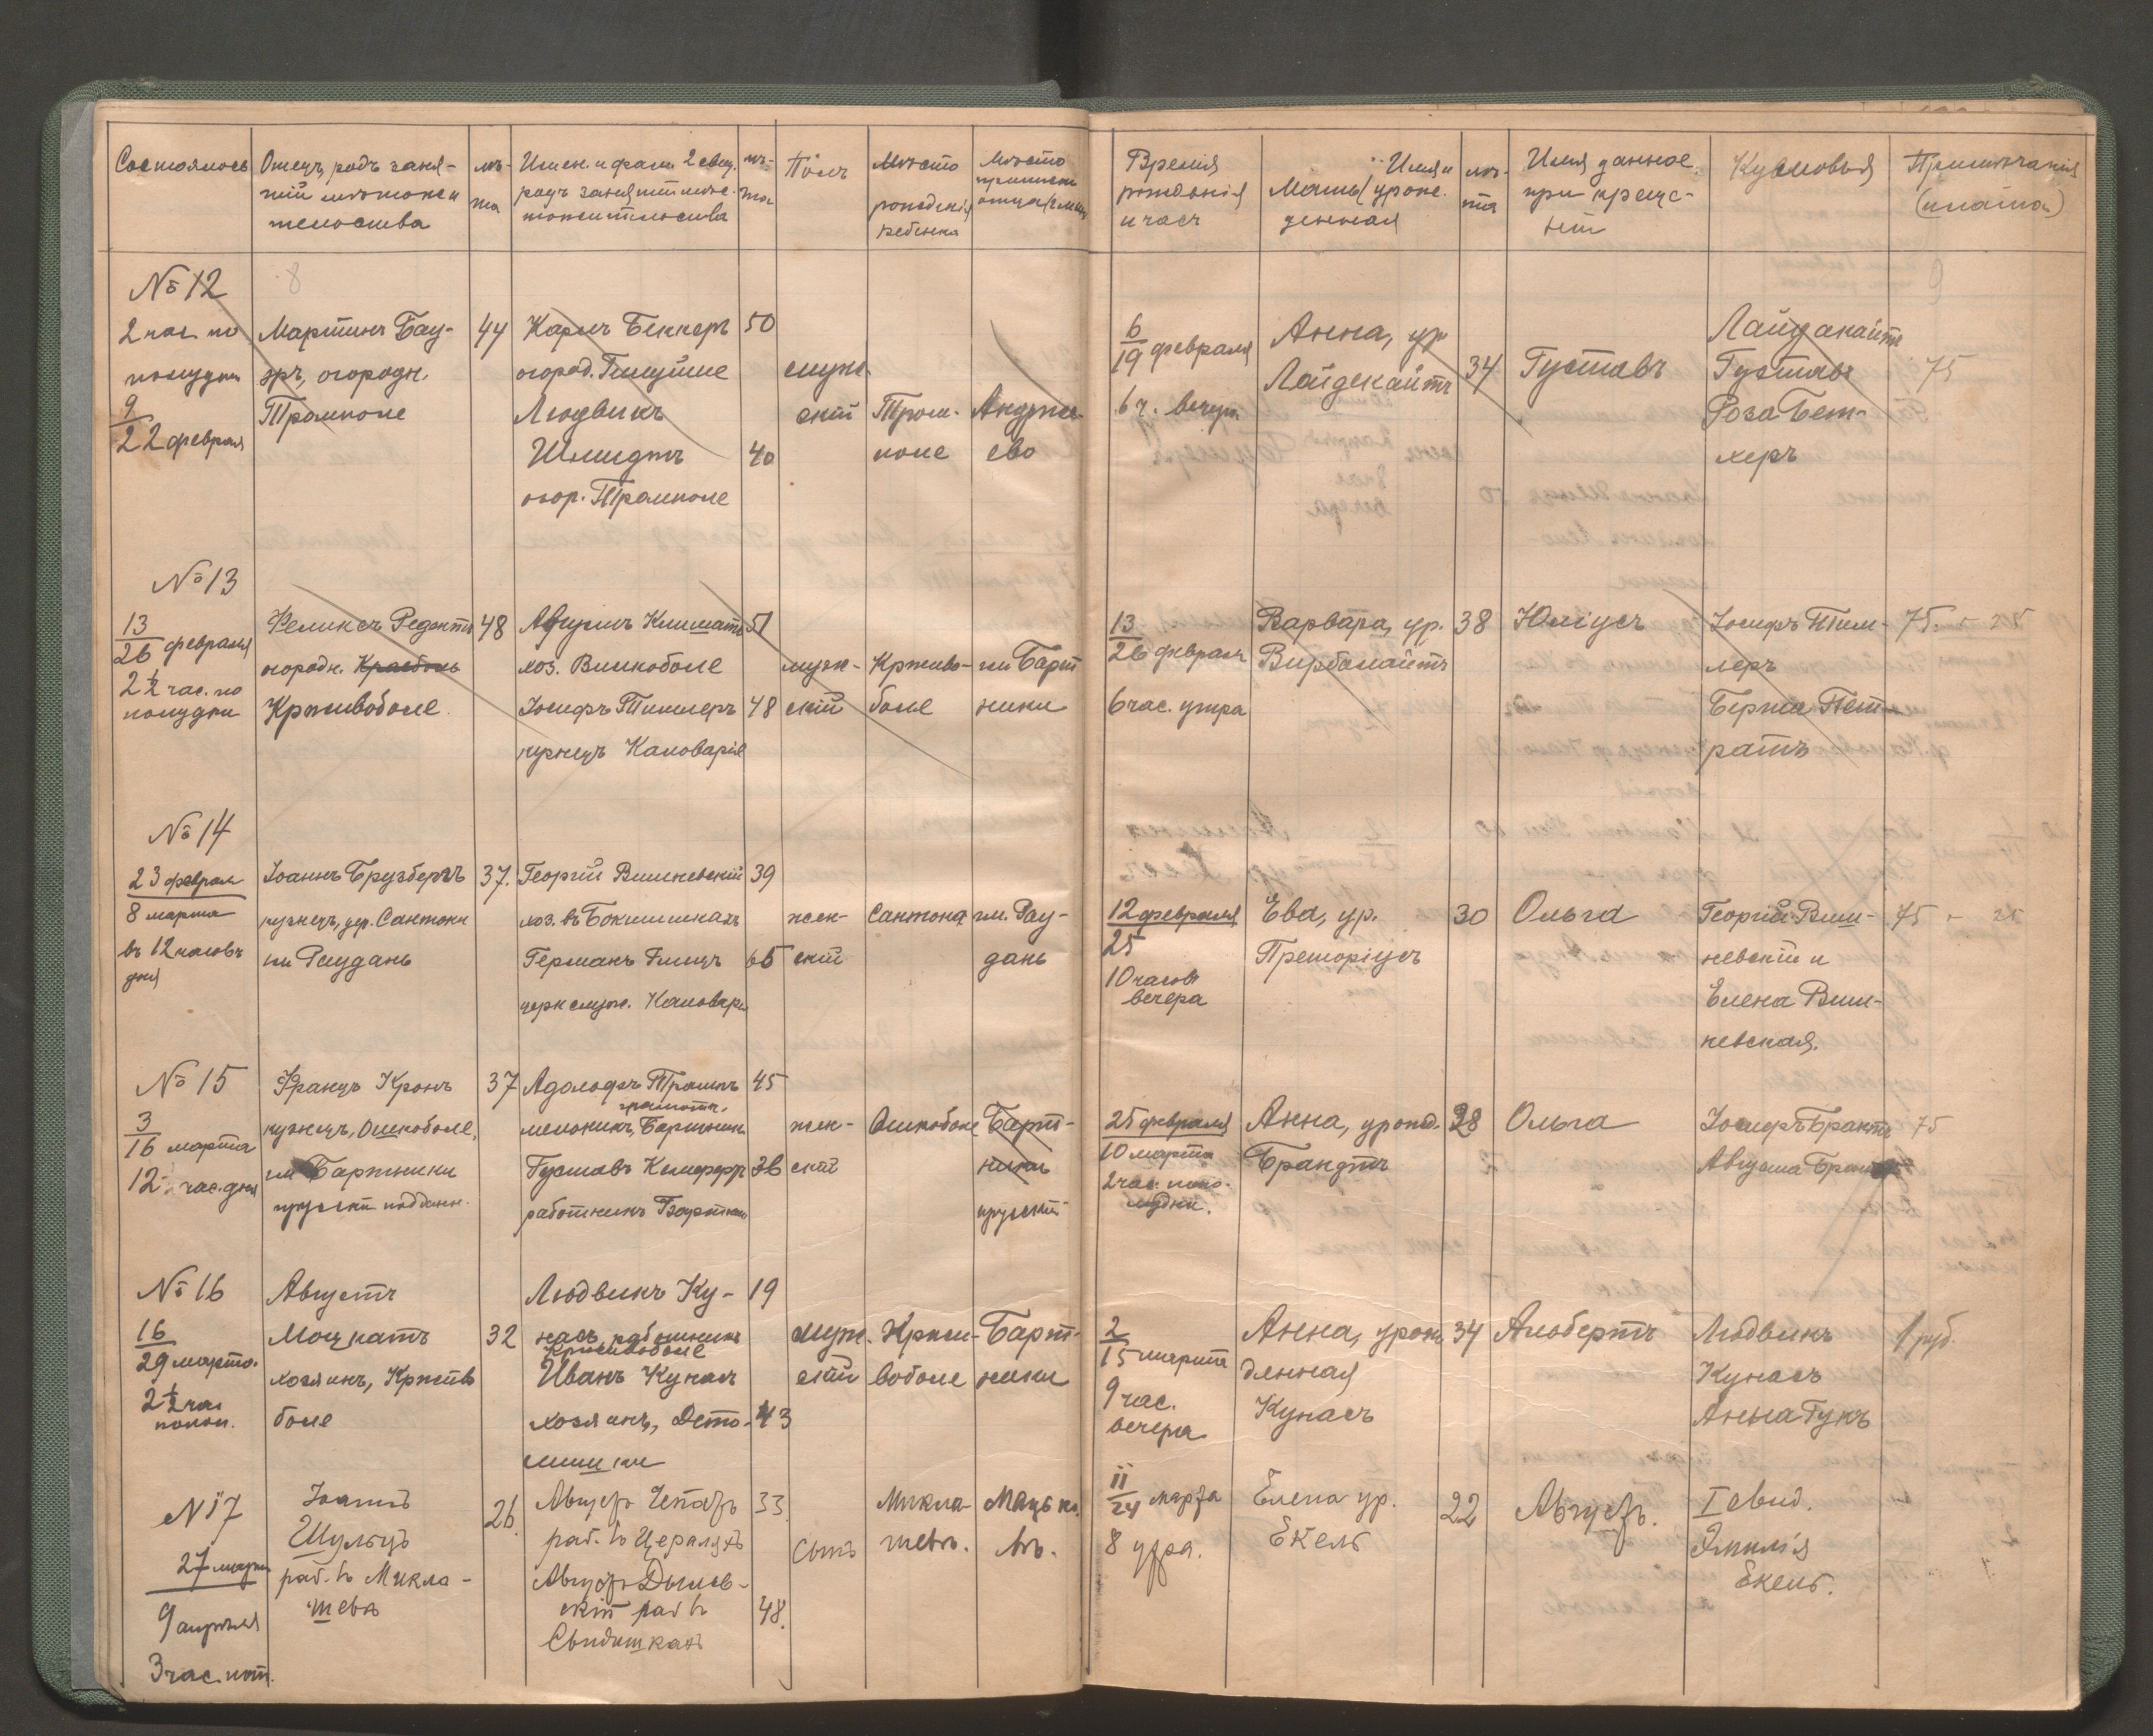 Состоялось
Отецъ, родъ заня-
тій мѣстожи
тельства
лѣ-
та
Имен. и фам. 2 свид.
родъ занятій мѣс-
тожительства
лѣ-
та
Полъ
Мѣсто
рожденія
ребенка
Мѣсто
приписки
отца
Время
рожденія
и часъ
Имя и
Мать / урож.
денная
лѣ-
та
Имя данное
при креще-
ніи
Кумовья
Примѣчанія
(плата)
№ 12
2 час. по
полудни
9
22 февраля
Мартинъ Бау-
эръ, огородн.
Трамполе
44
Карлъ Беккеръ
огород.
Людвикъ
Шмидтъ
огор. Трамполе
50
40
мужс-
скій
Трам-
поле
Андрже-
ево
6
19 февраля
6 ч. вечера
Анна, ур.
Лайдекайтъ
34
Густавъ
Лайдакайтъ
Густавъ
Роза Бет-
херъ
75
№ 13
13
26 февраля
2 ½ час. по
полудни
Феликсъ
огородн.
Крживоболе
48
Августъ Климатъ
хоз. Вилкоболе
Іосифъ Тиммлеръ
кузнецъ Калварія
51
48
муж-
скій
Крживо-
боле
гм Барт
ники
13
26 февраля
6 час. утра
Варвара, ур.
Вирболайтъ
38
Юліусъ
Іосифъ Тим-
леръ
Берта Пет-
ратъ
75 - 25
№ 14
23 февраля
8 марта
въ 12 часовъ
дня
Іоаннъ Брузбергъ
кузнецъ, дер. Сантоки
гм Раудань
37.
Георгій Вишневскій
хоз. въ Бокшишкахъ
Германъ
церк служ. Калварія
39
65
жен-
скій
Сантока
гм. Рау-
дань
12 февраля
25
10 часовъ
вечера
Ева, ур.
Преторіусъ
30
Ольга
Георгій Виш-
невскій и
Елена Виш-
невская.
75 - 25
№ 15
3
16 марта
12 час. дня
Францъ Кронъ
кузнецъ, Ошкоболе,
гм Бартники
прусскій поддан.
37
Адольфъ Трампъ
мельникъ, Бартники
Густавъ
работникъ Бартники
45
36
жен-
скій
Ошкоболе
Барт-
ники
прусскій
25 февраля
10 марта
2 час. попо-
лудни.
Анна, урожд.
Брандтъ
28
Ольга
Іосифъ Брандтъ
Августа
75
№ 16
16
29 марта.
2 ½ час
попол.
Августъ
Моцкатъ
хозяинъ, Крживо
боле
32
Людвикъ Ку-
насъ, работникъ
Крживоболе
Иванъ Кунасъ
хозяинъ, Дето-
мишки
19
43
муж-
скій
Кржи-
воболе
Барт-
ники
2
15 марта
9 час.
вечера
Анна, урож
денная
Кунасъ
34
Альбертъ
Людвикъ
Кунасъ
Анна Гукъ
1 руб.
№ 17
27 марта
9 апрѣля
3 час. поп.
Іоаннъ
Шульцъ
раб. въ Микла-
шевѣ
26.
Августъ
раб. въ
Августъ
скій раб въ
33.
48.
Сынъ
Микла-
шевъ.
Мацько
въ.
11
24 марта
8 утра.
Елена ур.
Екель
22
Августъ.
I свид.
Эмилія
Екель.